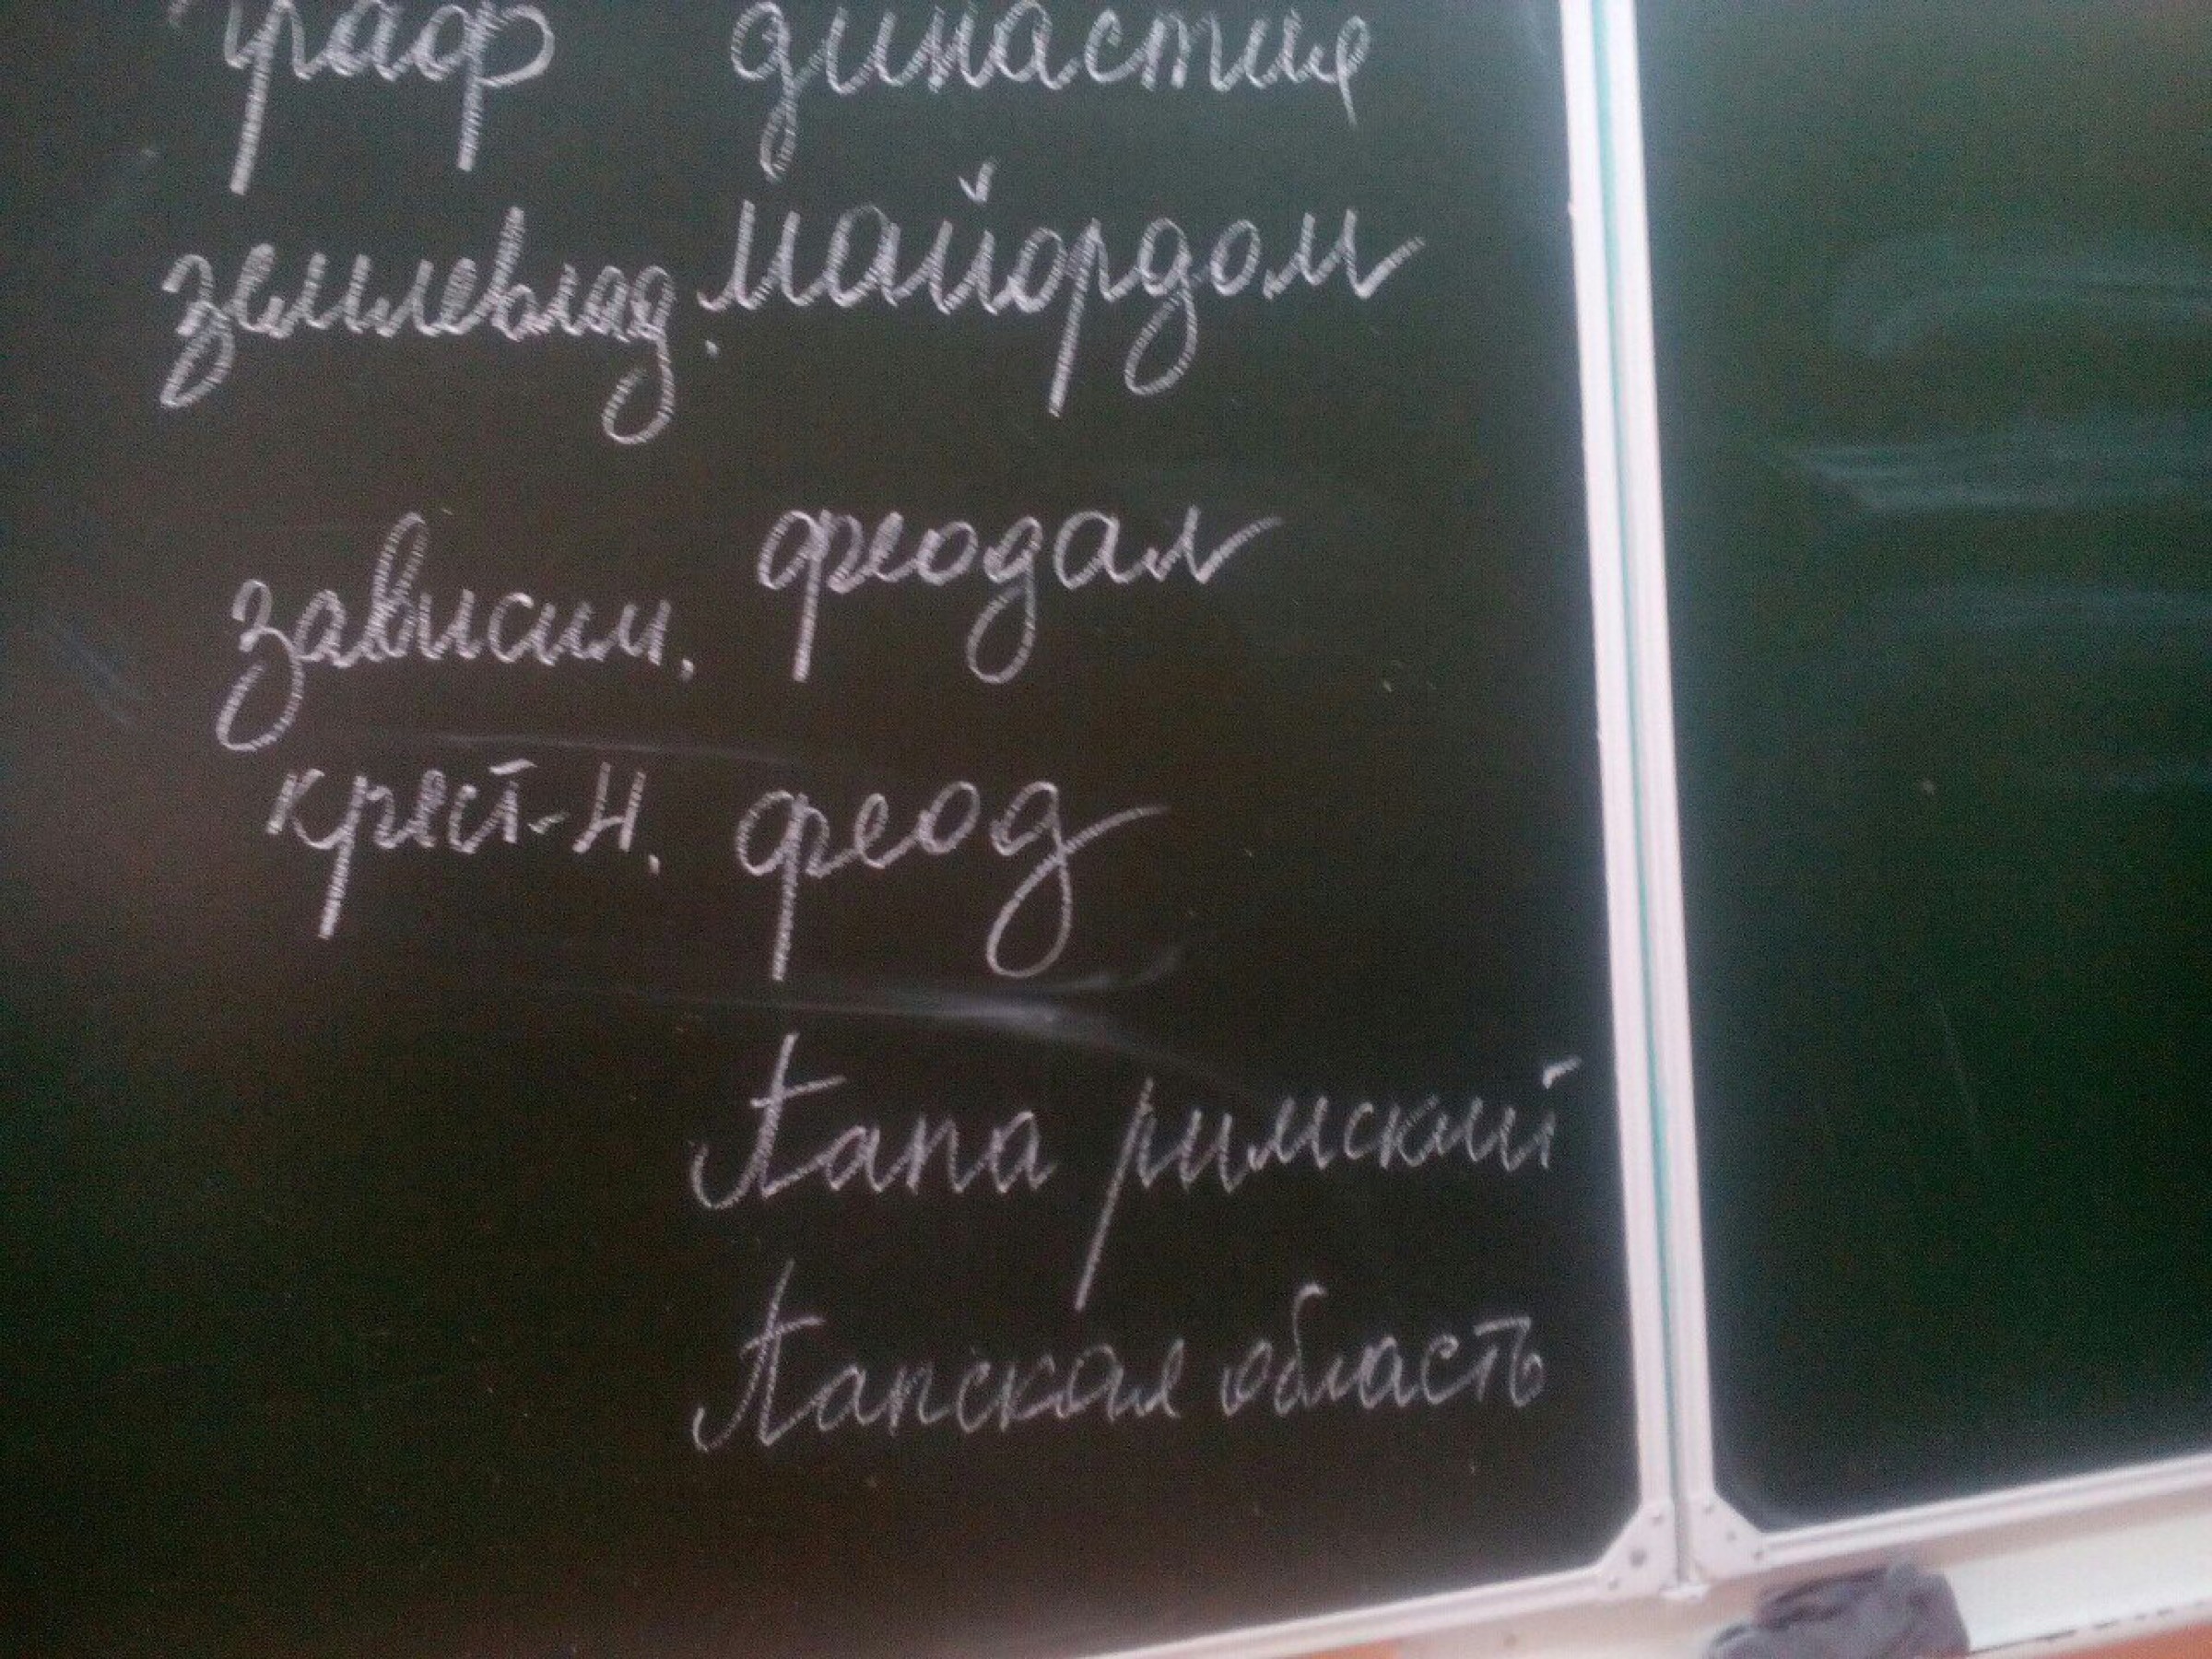 граф династия
землевлад. майордом
зависим. феодал
крест-н. феод
Папа римский
Папская область